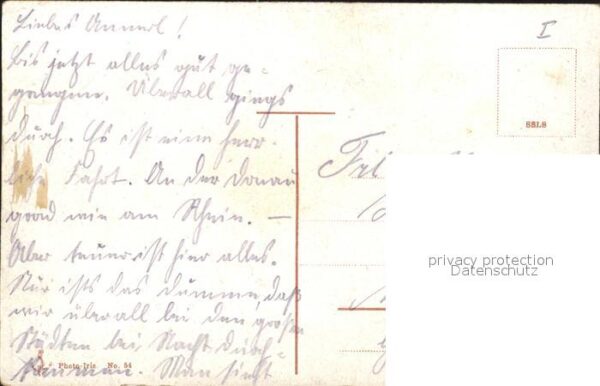 Liebes Annerl!
I
Bis jetzt alles gut ge-
gangen. Überall gings
durch. Es ist eine herr-
liche Fahrt. An der Donau
grad wie am Rhein. —
Aber teuer ist hier alles.
Nur ists das dumme, daß
wir überall bei den großen
Städten bei Nacht durch-
kommen. Man sieht
Photo-Iris No. 54
Frl.
privacy protection
Datenschutz